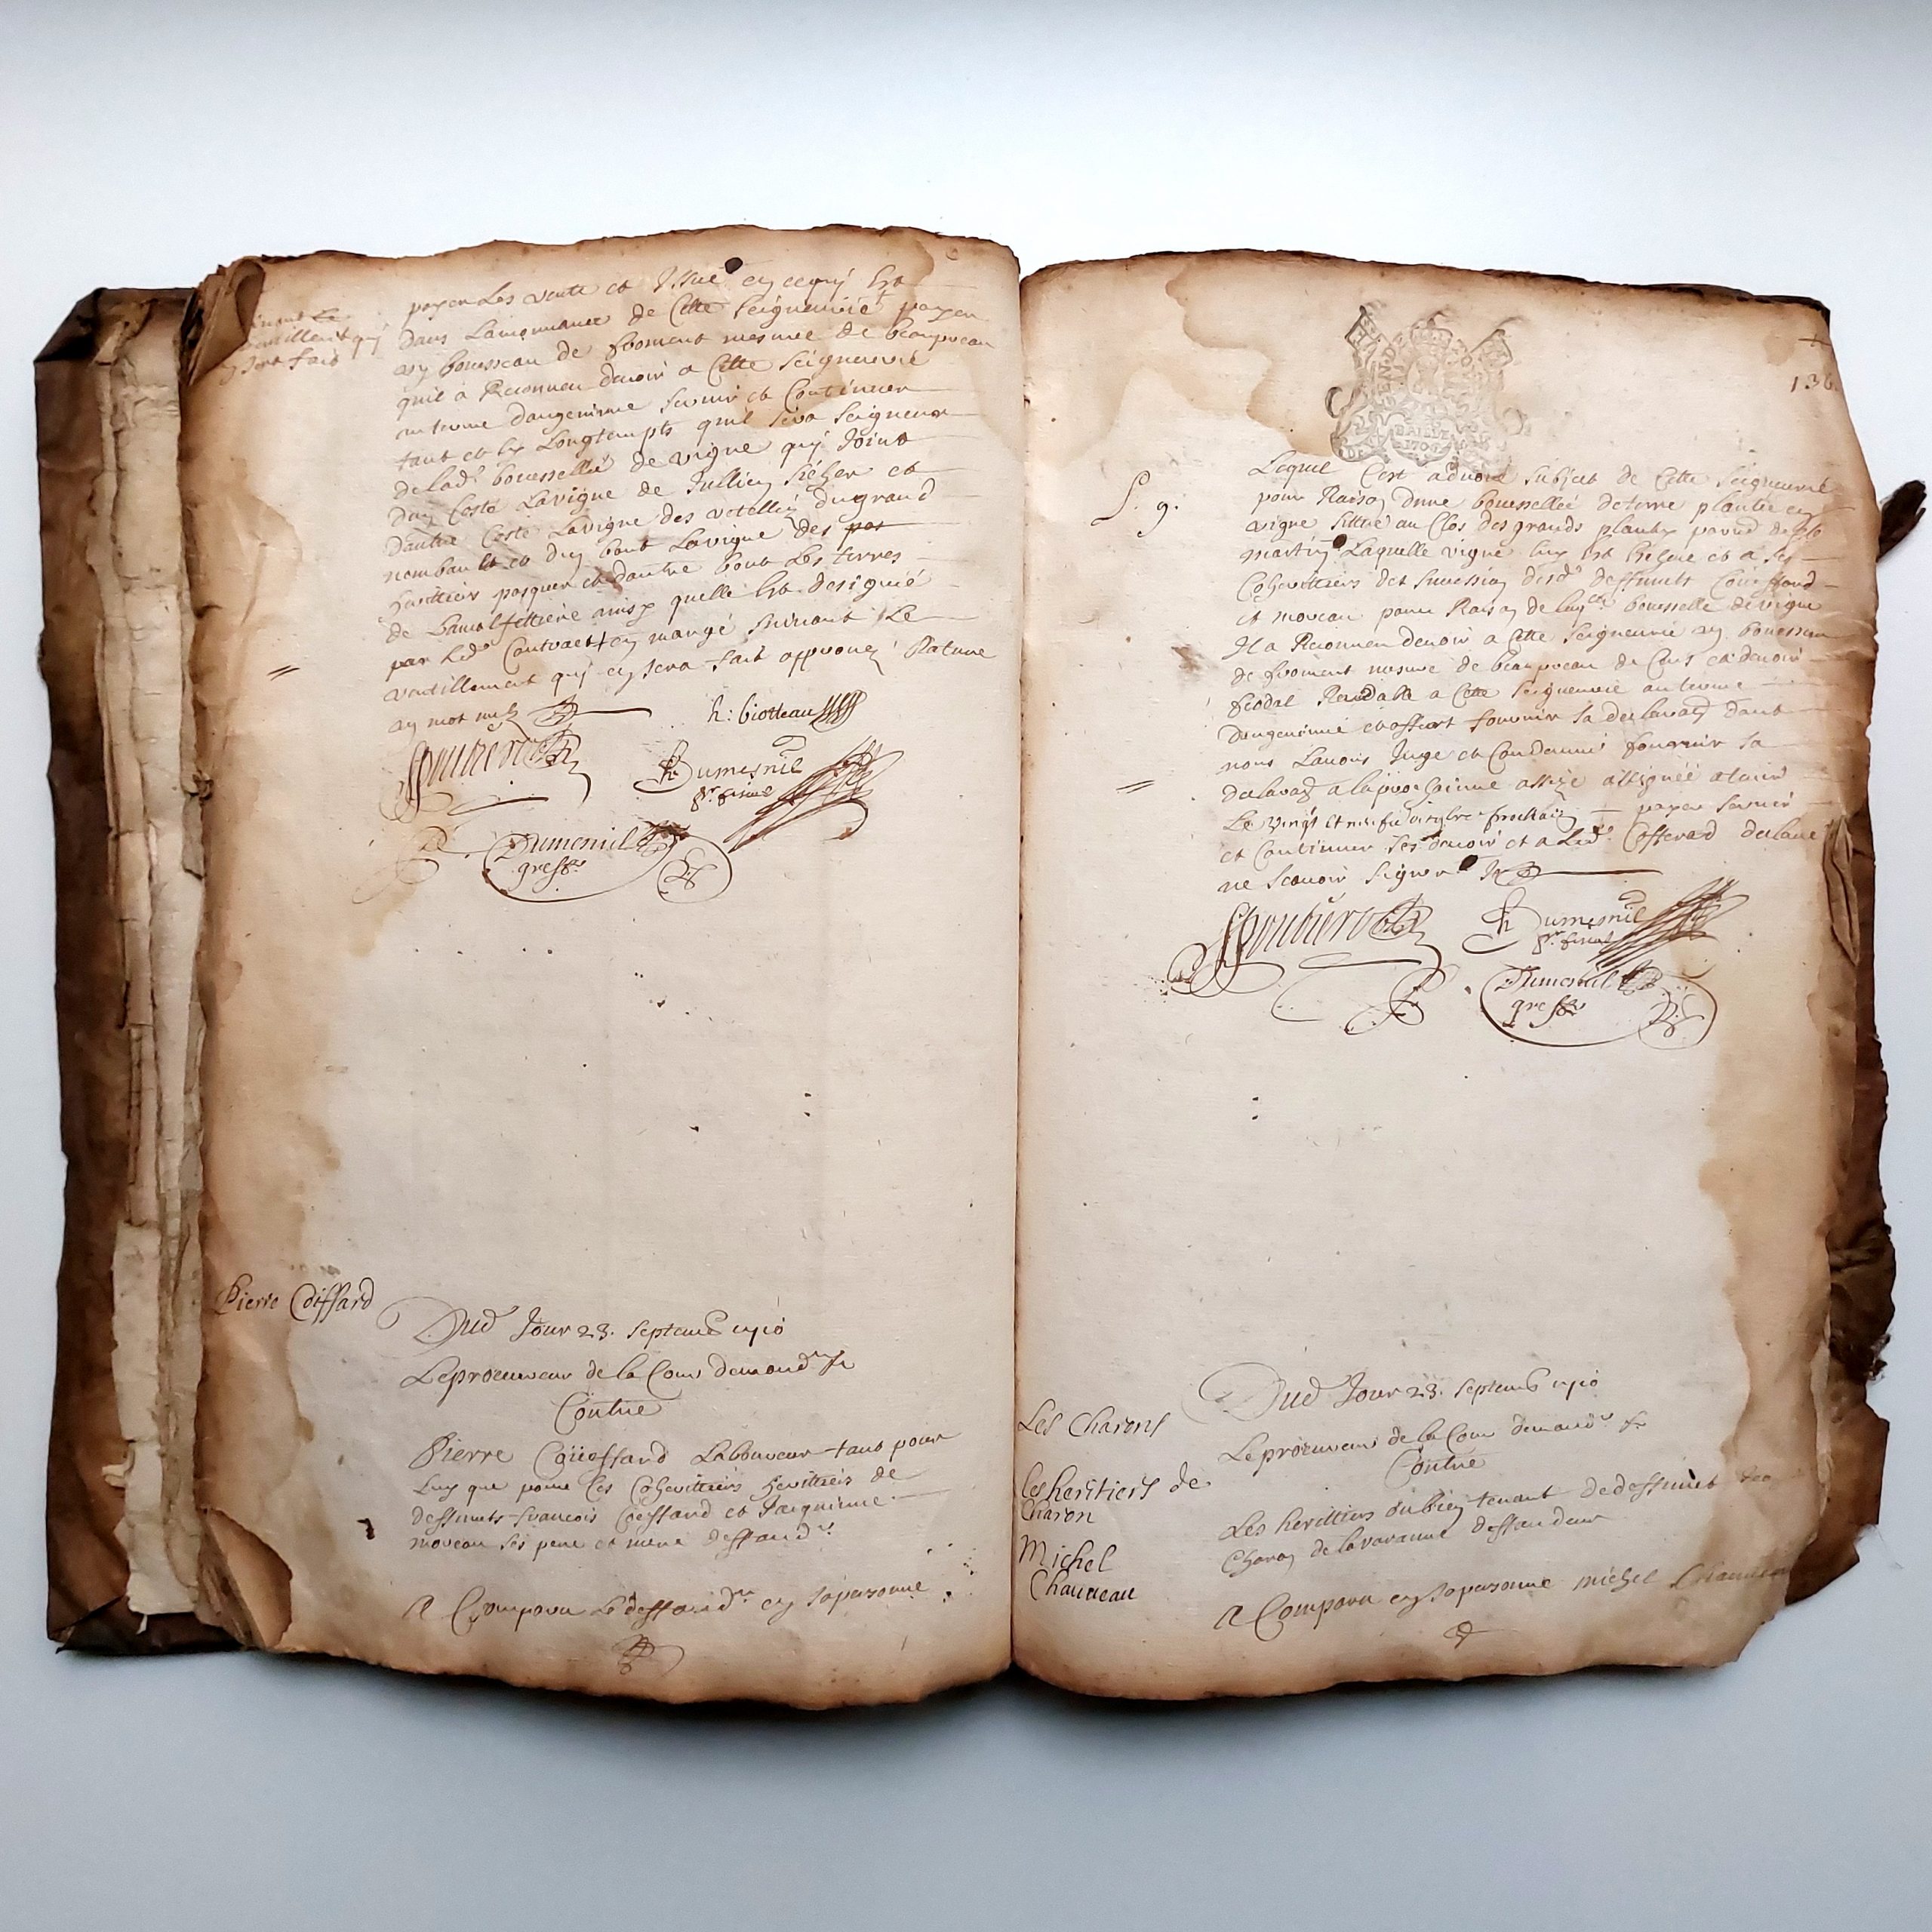 payer Les vente et Issue en ce quy Est
dans La mouuance de Cette seigneurie payer
un boisseau de froment mesure de beaupreau
quil a Reconneu devoir a Cette seigneurie
au terme dangevinne servir et Continuer
tant et sy Longtemps quil sera seigneur
de lad. bouessellée de vigne quy Joint
dun Costé La vigne de Jullien et
dautre Costé La vigne des du grand
et dun bout La vigne des par
herittiers pasquer et dautre bout Les terres
de ainsy quelle Est designée
par Led. Contract en marge suivant Le
ventillement quy en sera fait approuvé Rature
un mot nul
h: biotteau
Dumesnil
pr. fiscal
Dumesnil
greff.
Pierre Coiffard
Dud Jour 23. septemb 1710
Le procureur de la Cour demand
Contre
Pierre Coueffard Laboureur tant pour
Luy que pour ses Coherittiers herittiers de
deffunts francois Coeffard et Jacquinne
moreau ses pere et mere deffand
A Comparu Le deffand en sa personne
136
GEND
1706
f. 9.
Lequel C'est advoué subject de Cette seigneurie
pour Raison dune bouessellée de terre plantée en
vigne sittué au Clos des grands plantis de st
martin Laquelle vigne luy est Eschue et a ses
Coherittiers des succession desd. deffunts Coueffard
et moreau pour Raison de bouessellée de vigne
Il a Reconneu devoir a Cette seigneurie un bouesseau
de froment mesure de beaupreau de Cens et devoir
feodal Rendable a Cette seigneurie au terme
dangevinne et offert fournir sa declaration dont
nous Lavons Juge et Condamné fournir sa
declaration a la prochainne assize assignée a tenir
Le vingt et neufie octobre prochain payer servir
et Continuer ses devoir et a Led. Coffeard declaré
ne scavoir signer
Dumesnil
pr. fiscal
Dumesnil
greff.
Les Charons
les heritiers de
Charon
Michel
Chauveau
Dud Jour 23. septemb 1710
Le procureur de la Cour demand
Contre
Les herittiers ou bien tenant de deffunct
Charon de la varanne deffandeur
A Comparu en sa personne michel Chauveau